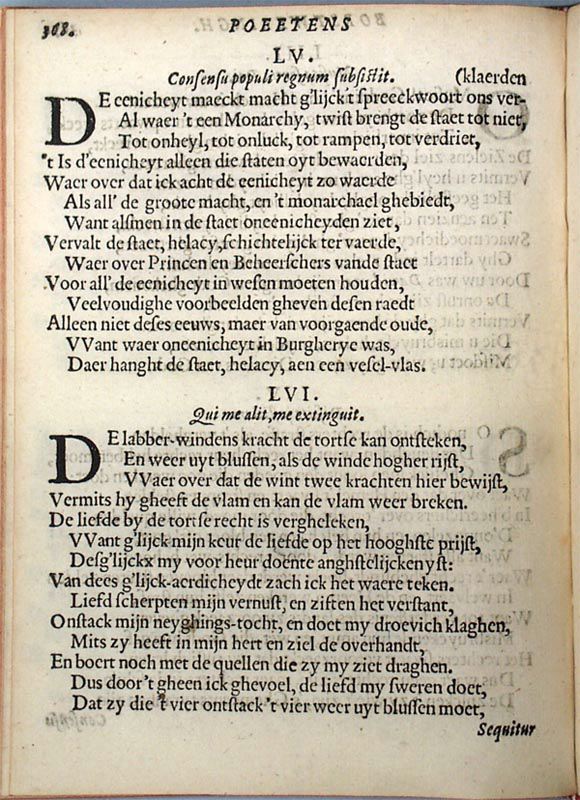 368.
POEETENS
LV.
Consensu populi regnum subsistit. (klaerden
DE eenicheyt maeckt macht g'lijck't spreeckwoort ons ver-
Al waer 't een Monarchy, twist brengt de staet tot niet,
Tot onheyl, tot onluck, tot rampen, tot verdriet,
't Is d'eenicheyt alleen die staten oyt bewaerden,
Waer over dat ick acht de eenicheyt zo waerde
Als all' de groote macht, en 't monarchael ghebiedt,
Want alsmen in de staet oneenicheyden ziet,
Vervalt de staet, helacy, schichtelijck ter vaerde,
Waer over Princen en Beheerschers vande staet
Voor all' de eenicheyt in wesen moeten houden,
Veelvoudighe voorbeelden gheven desen raedt
Alleen niet deses eeuws, maer van voorgaende oude,
VVant waer oneenicheyt in Burgherye was,
Daer hanght de staet, helacy, aen een vesel-vlas.
LVI.
Qui me alit, me extinguit.
DE labber-windens kracht de tortse kan ontsteken,
En weer uyt blussen, als de winde hogher rijst,
VVaer over dat de wint twee krachten hier bewijst,
Vermits hy gheeft de vlam en kan de vlam weer breken.
De liefde by de tortse recht is vergheleken,
VVant g'lijck mijn keur de liefde op het hooghste prijst,
Desg'lijckx my voor heur doente anghstelijcken yst:
Van dees g'lijck-aerdicheydt zach ick het waere teken.
Liefd scherpten mijn vernuft, en ziften het verstant,
Onstack mijn neyghings-tocht, en doet my droevich klaghen,
Mits zy heeft in mijn hert en ziel de overhandt,
En boert noch met de quellen die zy my ziet draghen.
Dus door't gheen ick ghevoel, de liefd my sweren doet,
Dat zy die 't vier ontstack 't vier weer uyt blussen moet,
Sequitur